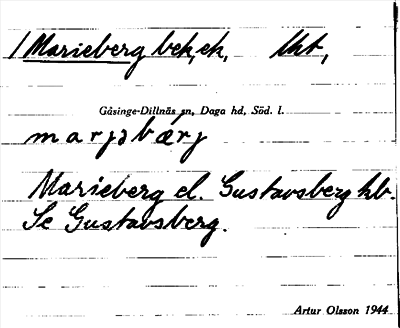 /Marieberg bek, ek, lht,
Gåsinge-Dillnäs sn, Daga hd, Söd. l.
marjəbærj
Marieberg el. Gustavsberg hb.
Se Gustavsberg.
Artur Olsson 1944